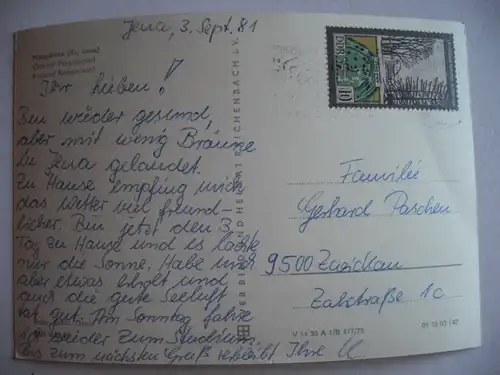 Jena, 3. Sept. 81
Ihr Lieben!
Bin wieder gesund,
aber mit wenig Bräune
in Jena gelandet.
Zu Hause empfing mich
das Wetter viel freund-
licher. Bin jetzt den 3.
Tag zu Hause und es lachte
nur die Sonne. Habe mich
aber etwas erholt und
auch die gute Seeluft
tat gut. Am Sonntag fahre
ich wieder zum Studium.
Bis zum nächsten Gruß verbleibt Ihre U
BILD UND HEIMAT REICHENBACH I. V.
DDR
10
Familie
Gerhard Paschen
9500 Zwickau
Talstraße 1c
V 11 50 A 1/B 417/75
01 10 03 / 47